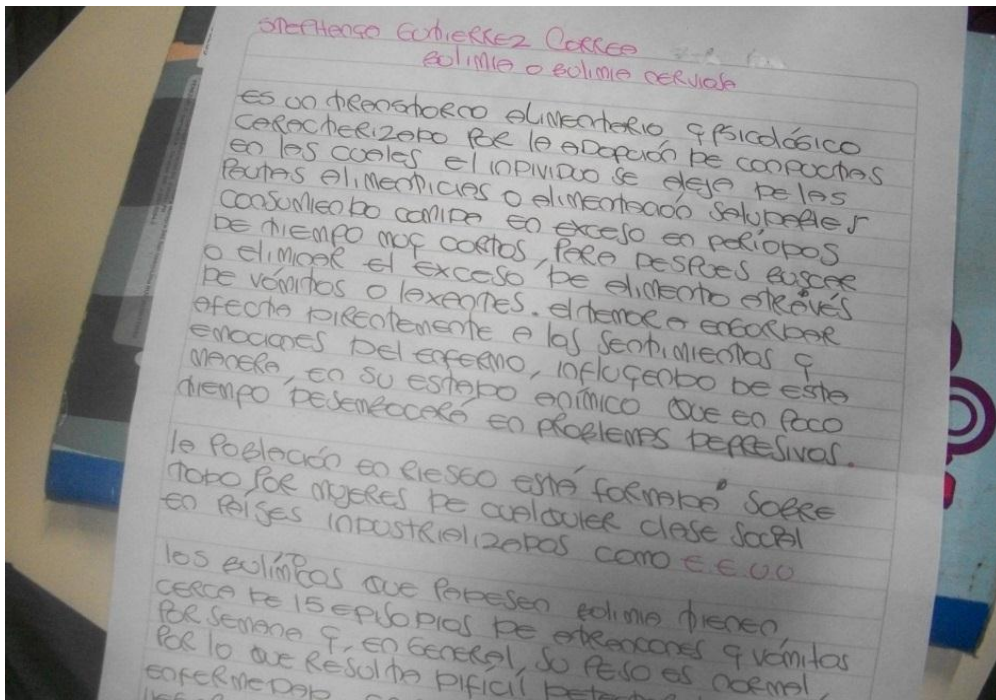 STEPHENSO GUTIERREZ CORREA
BULIMIA O BULIMIA NERVIOSA
ES UN TRANSTORNO ALIMENTARIO Y PSICOLÓGICO
CARACTERIZADO POR LA ADOPCIÓN DE CONDUCTAS
EN LAS CUALES EL INDIVIDUO SE ALEJA DE LAS
PAUTAS ALIMENTICIAS O ALIMENTACIÓN SALUDABLES
CONSUMIENDO COMIDA EN EXCESO EN PERÍODOS
DE TIEMPO MUY CORTOS, PARA DESPUES BUSCAR
O ELIMINAR EL EXCESO DE ALIMENTO ATRAVÉS
DE VÓMITOS O LAXANTES. EL TEMOR A ENGORDAR
AFECTA DIRECTAMENTE A LOS SENTIMIENTOS Y
EMOCIONES DEL ENFERMO, INFLUYENDO DE ESTA
MANERA, EN SU ESTADO ANÍMICO QUE EN POCO
TIEMPO DESEMBOCARÁ EN PROBLEMAS DEPRESIVOS.
LA POBLACIÓN EN RIESGO ESTÁ FORMADA SOBRE
TODO POR MUJERES DE CUALQUIER CLASE SOCIAL
EN PAÍSES INDUSTRIALIZADOS COMO E.E.U.U
LOS BULÍMICOS QUE PADESEN BULIMIA TIENEN
CERCA DE 15 EPISODIOS DE ATRACONES Y VÓMITOS
POR SEMANA Y, EN GENERAL, SU PESO ES NORMAL
POR LO QUE RESULTA DIFICIL
ENFERMEDAD